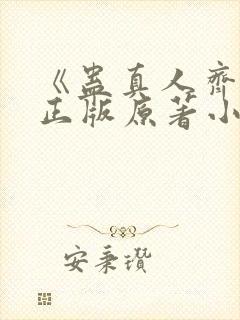 《蛊真人齐
正版原著小
安秉瓒